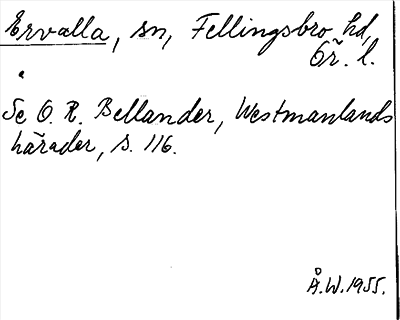 Ervalla, sn, Fellingsbro hd,
Ör. l.
Se O. R. Bellander, Westmanlands
härader, s. 116.
Å.W. 1955.